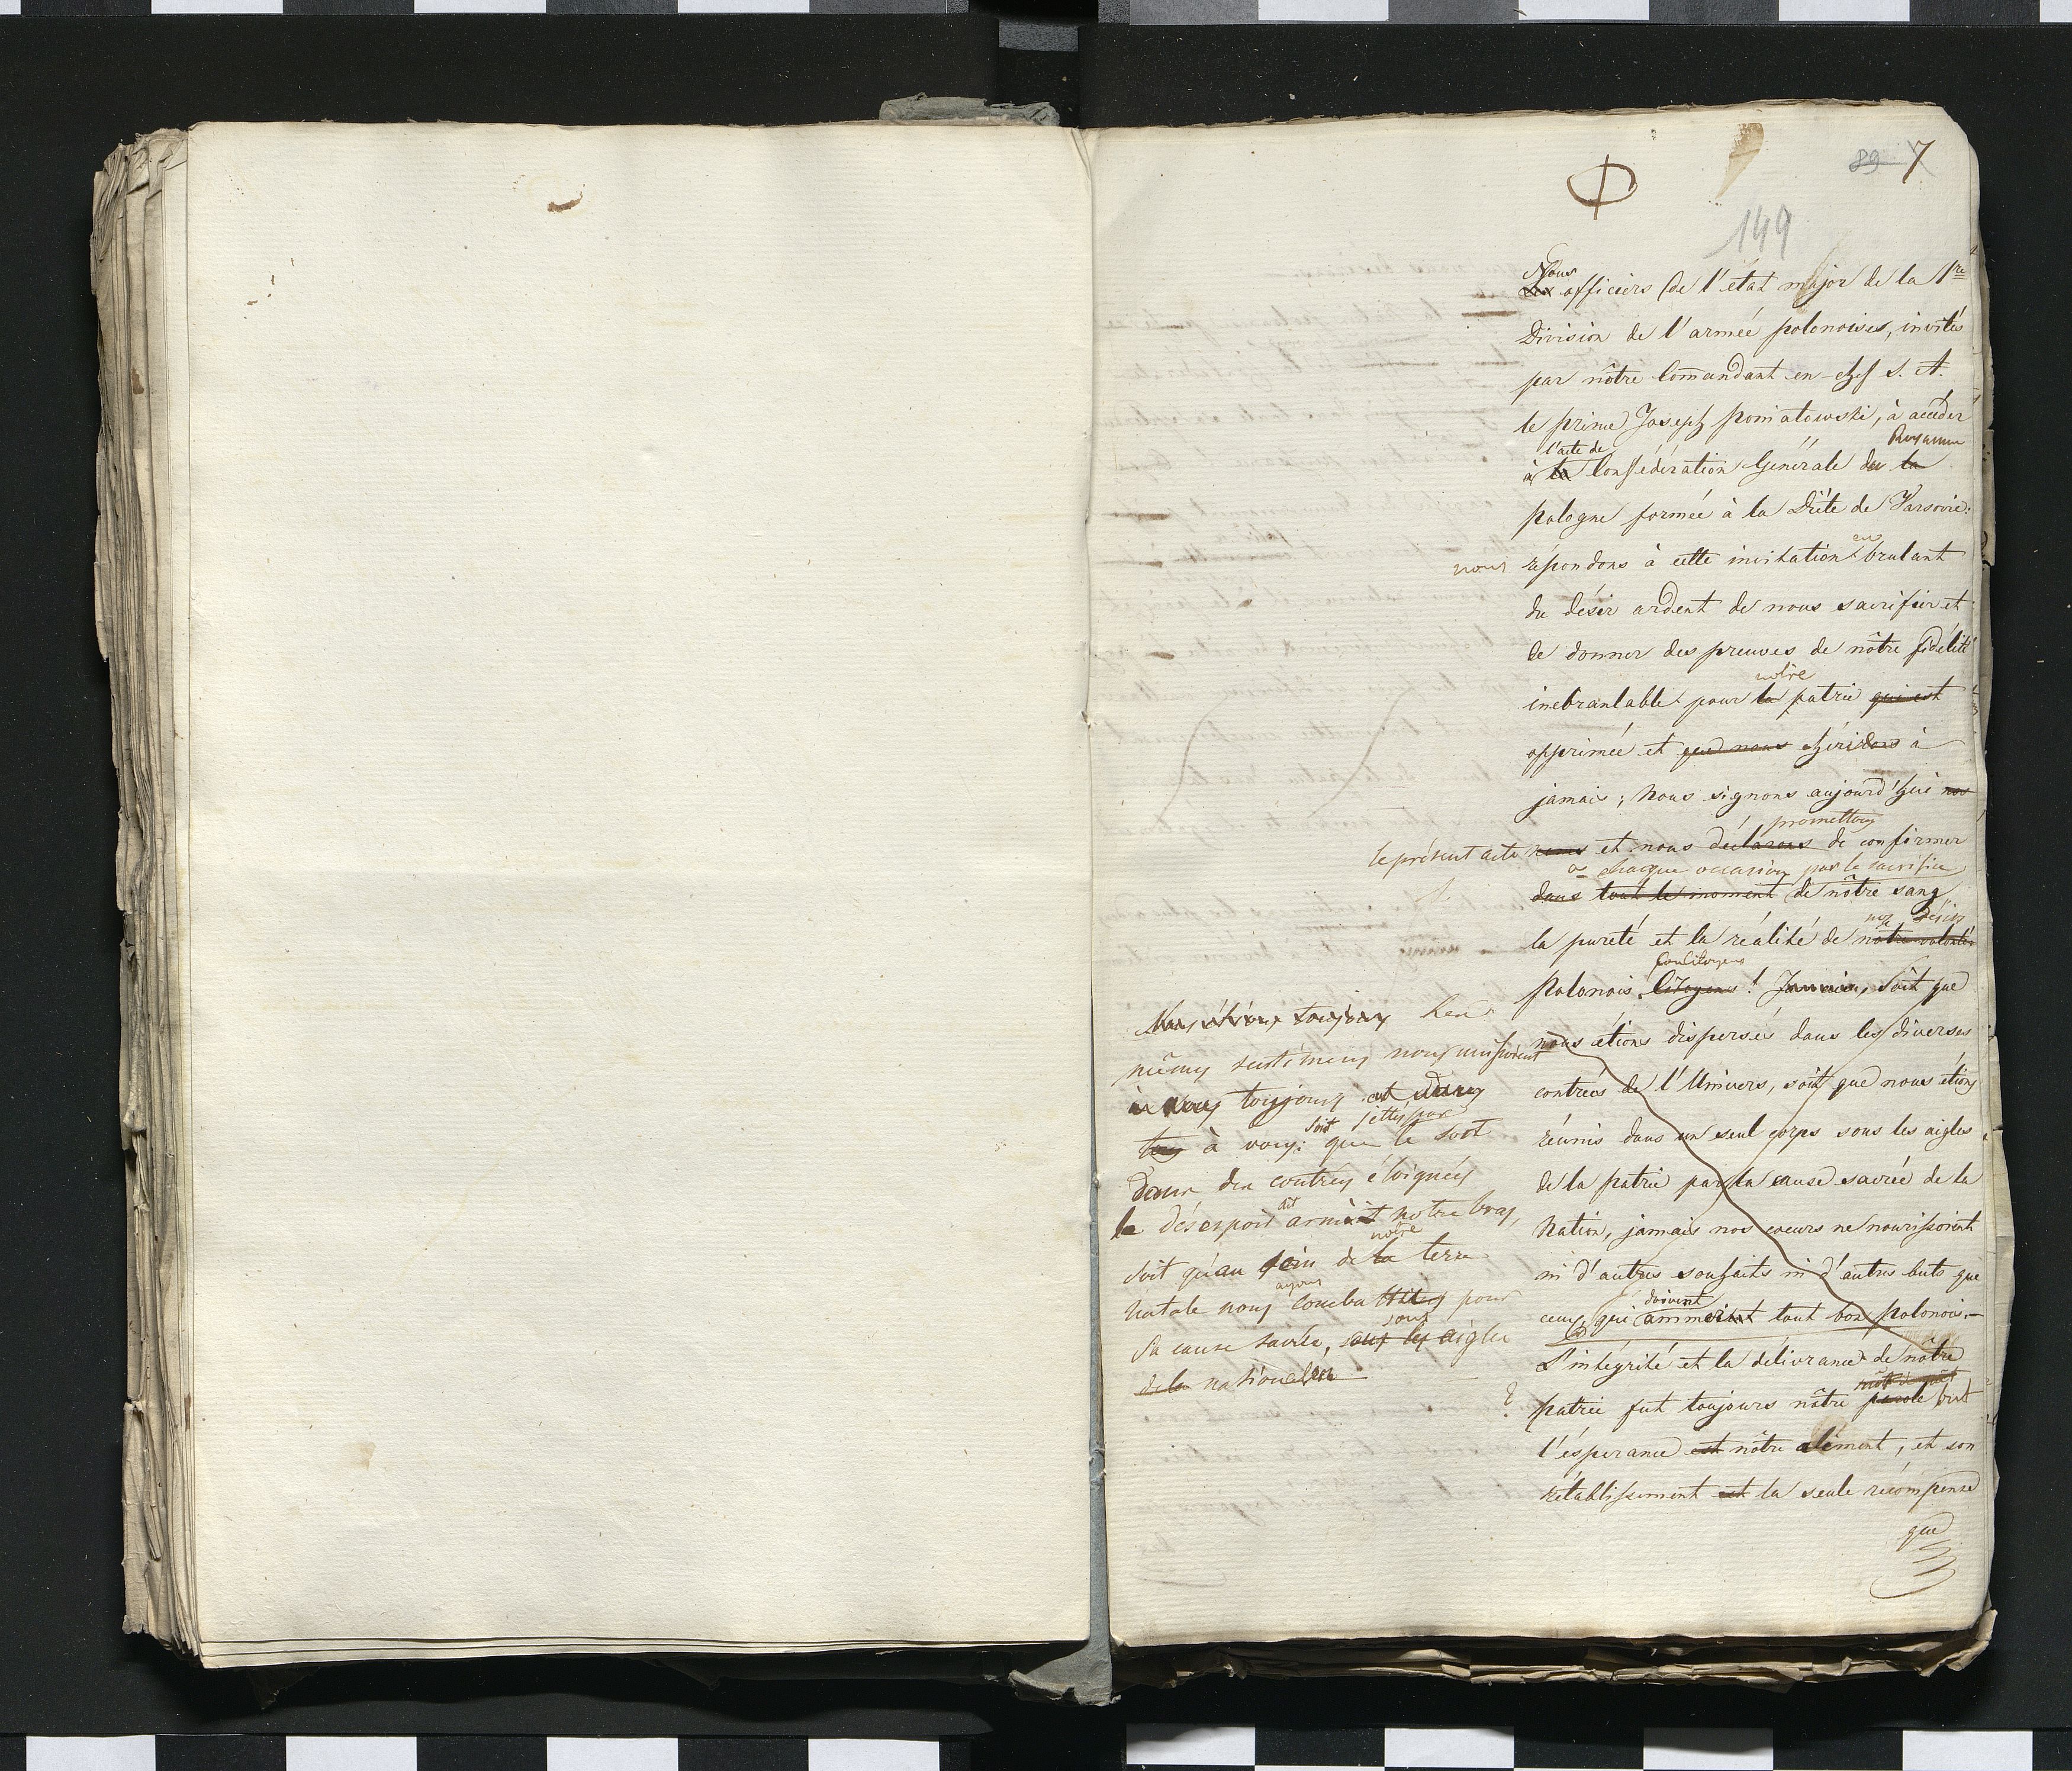 89 7
149
Nous
Les officiers de l'état major de la 1re
Division de l'armée polonoises, invités
par nôtre Commandant en chef S. A.
le prince Joseph poniatowski, à acceder
l'acte de Royaume
à la Confédération Générale du la
pologne formée à la Diéte de Varsovie:
en
nous répondons à cette invitation brulant
du désir ardent de nous sacrifier et
de donner des preuves de nôtre fidélité
notre
inebranlable pour la patrie qui est
opprimée et que nous chérirons à
jamais; Nous signons aujourd'hui nos
promettons
le présent acte noms et nous déclarons de confirmer
à chaque occasion par le sacrifice
dans tout le moment de nôtre sang
nos désirs
la pureté et la réalité de notre volonté
Concitoyens
Polonois Citoyens! Jamais, Soit que
nous étions dispersés dans les diverses
contrées de l'Univers, soit que nous étions
réunis dans un seul corps sous les aigles
de la patrie par la cause sacrée de la
Nation, jamais nos coeurs ne nourissoient
ni d'autres souhaits ni d'autres buts que
doivent
ceux qui animoient tout bon polonois.-
L'intégrité et la délivrance de nôtre
patrie fut toujours nôtre parole but
l'ésperance est nôtre aliment, et son
rétablissement est la seule récompense
que
toujours
mêmes sentimens nous unissoient
à vous toujours et
à vous: soit que le sort
jettés par
dans des contrées éloignées
le désespoir armât notre bras,
notre
soit qu'au sein de la terre
ayons
Natale nous combattîmes pour
sous
Sa cause sacrée, sous les aigles
de la nationales
?